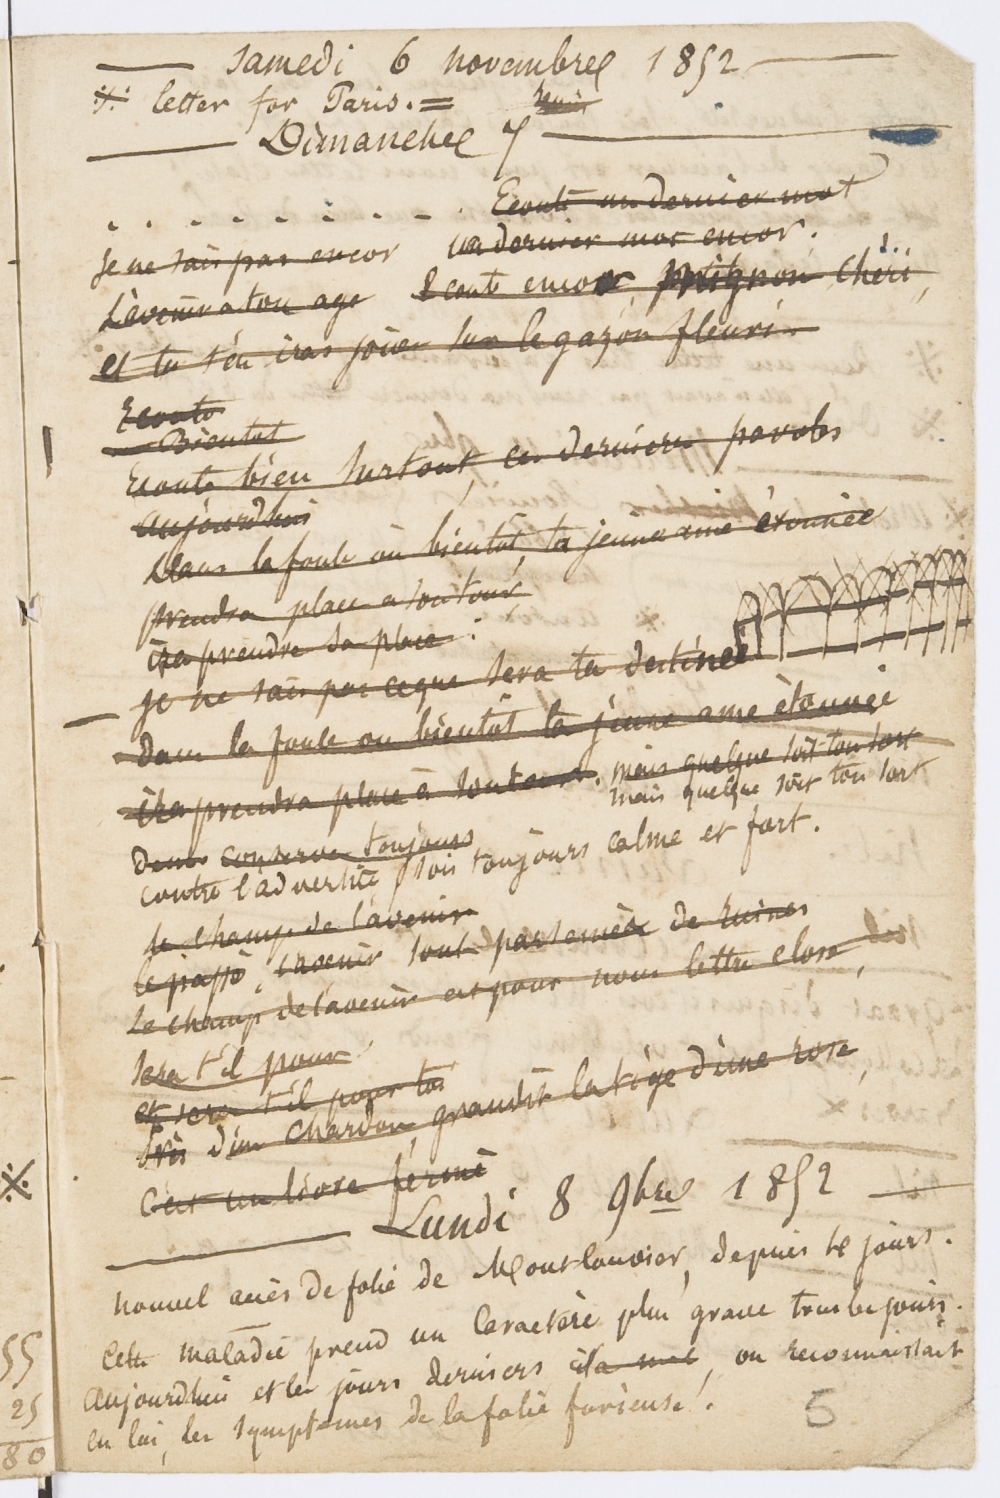 Samedi 6 novembre 1852
※ letter for Paris. =
Dimanche 7
Ecoute un dernier mot
je ne sais pas encor un dernier mot encor.
L'avenir a ton age Ecoute encor, mignon chéri,
et tu t'en iras jouer sur le gazon fleuri.
Ecoute
Bientot
Ecoute bien surtout, ces dernieres paroles
aujourd'hui
Dans la foule ou bientôt, ta jeune ame étonnée
prendra place a son tour
ira prendre sa place :
je ne sais pas ce que sera ta destinée
Dans la foule ou bientôt ta jeune ame étonnée
ira prendra place à son tour. mais quelque soit ton sort
mais quelque soit ton sort
conserve toujours
contre l'adversité, sois toujours calme et fort.
le champ de l'avenir
le passé, l'avenir tout de ruines
Le champ de l'avenir est pour nous lettre close,
sera t'il pour
et sera t'il pour toi
Près d'un chardon, grandit la tige d'une rose,
C'est un livre fermé
Lundi 8 9bre 1852
nouvel accès de folie de Montlouvier, depuis 14 jours.
Cette maladie prend un Caractère plus grave tous les jours.
aujourdhui et les jours derniers, on reconnaissait
en lui, les symptomes de la folie furieuse !
5
55
25
80